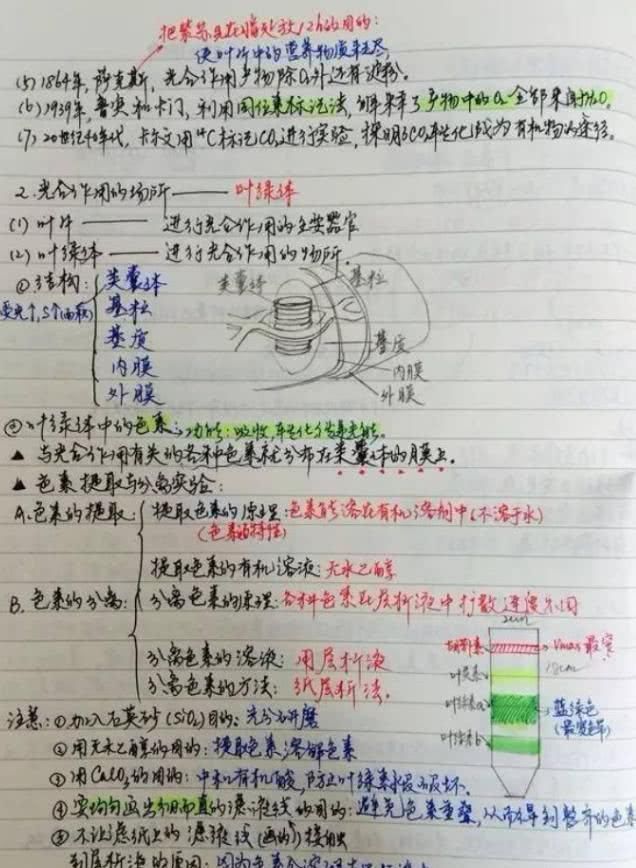 把紫苏员在暗处放12h的目的:
使叶片中的营养物质耗尽
(5) 1864年, 萨克斯, 光合作用产物除O₂外还有淀粉。
(6) 1939年, 鲁宾和卡门, 利用同位素标记法, 产物中的O₂全部来自H₂O。
(7) 20世纪40年代, 卡尔文用¹⁴C标记CO₂进行实验, 探明了CO₂转化成为有机物的途径。
2. 光合作用的场所——叶绿体
(1) 叶片——进行光合作用的主要器官
(2) 叶绿体——进行光合作用的场所.
①结构:
受光个,S个(面积)
类囊体
基粒
基质
内膜
外膜
类囊体
基粒
基质
内膜
外膜
②叶绿体中的色素: 功能:吸收,转化光能。
▲ 与光合作用有关的各种色素就分布在类囊体的膜上.
▲ 色素提取与分离实验:
A.色素的提取: 提取色素的原理:色素能溶在有机溶剂中(不溶于水)
(色素的特性)
提取色素的有机溶液:无水乙醇
B. 色素的分离: 分离色素的原理:各种色素在层析液中扩散速度不同
分离色素的溶液: 用层析液
分离色素的方法: 纸层析法.
2cm
胡萝卜素
Vmax 最窄
18cm
叶黄素
叶绿素a
蓝绿色
(最宽色带)
叶绿素b
注意: ①加入石英砂(SiO₂)目的: 充分研磨
②用无水乙醇的目的: 提取色素溶解色素
③用CaCO₃的目的: 中和有机酸,防止叶绿素被破坏.
④要均匀画出细而直的滤液线的目的: 避免色素重叠,从而得到整齐的色素
⑤不让滤纸上的滤液线(画的)接触
到层析液的原因: